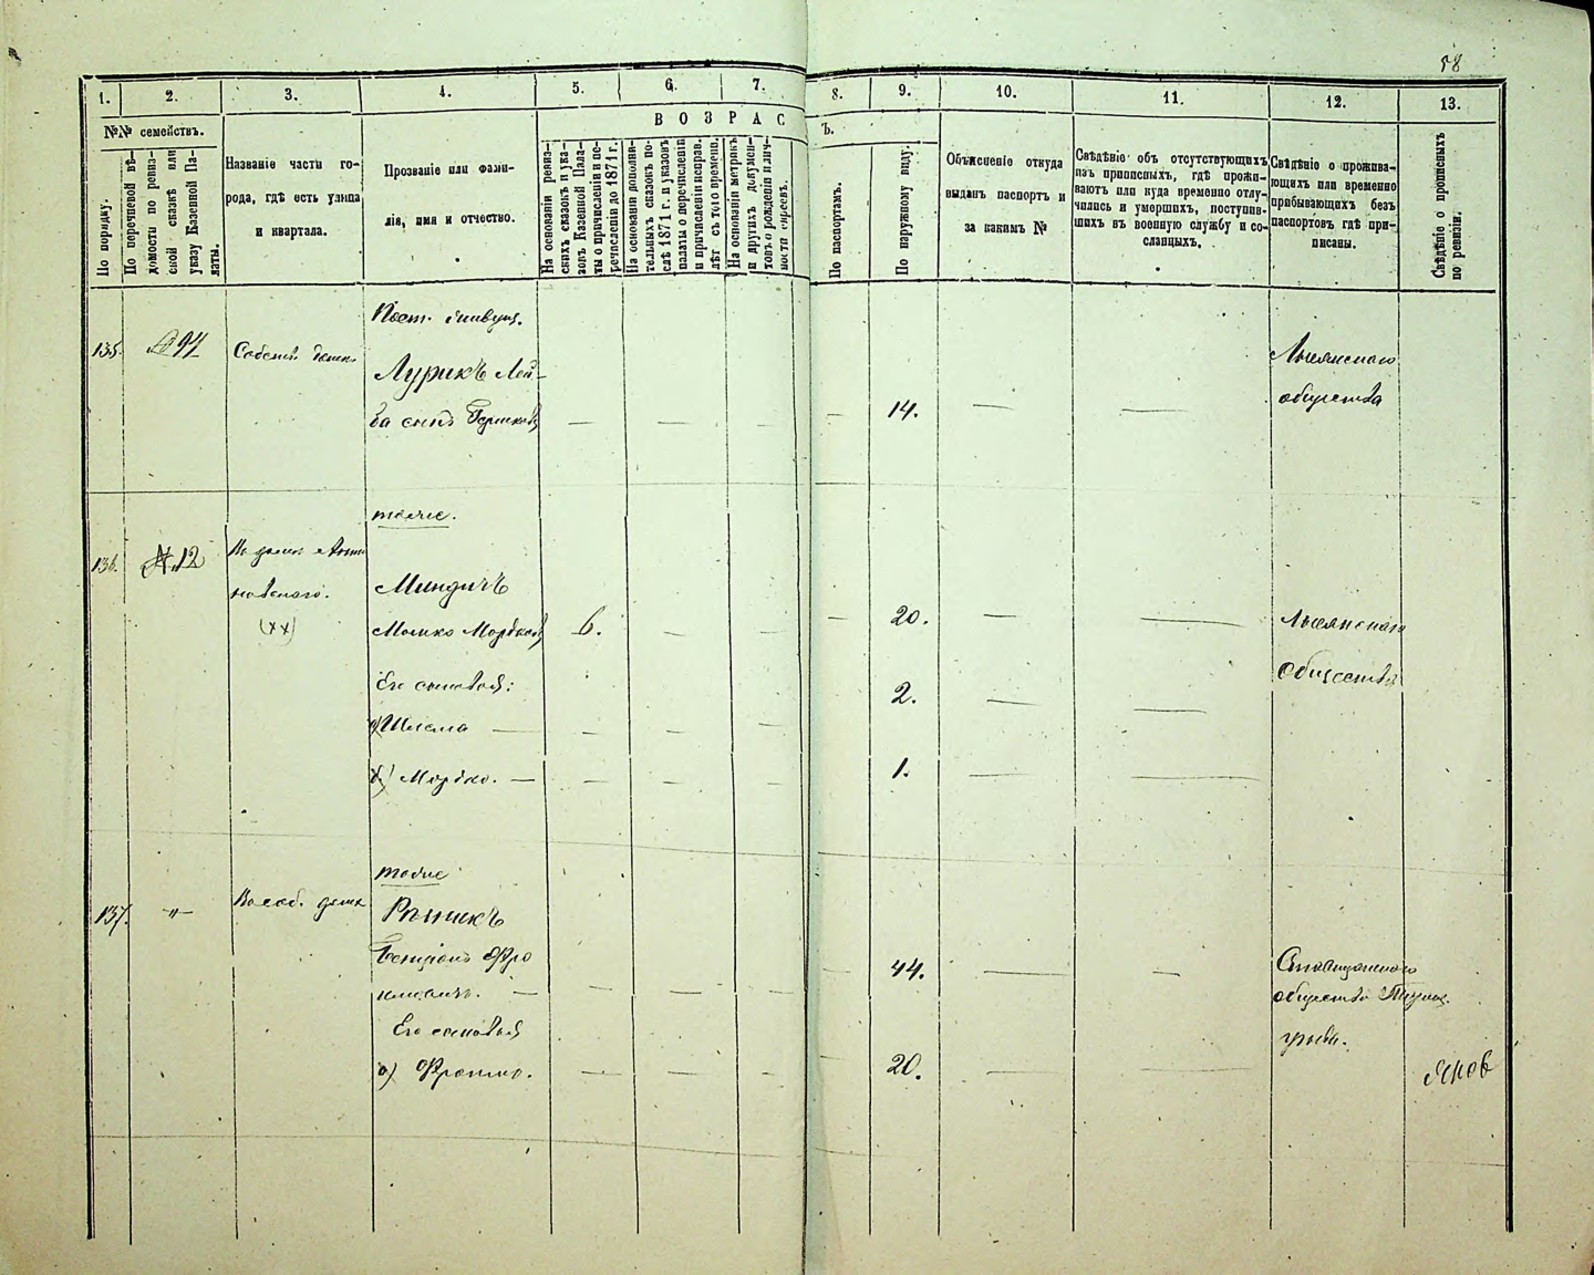 58
1. 2. 3. 4. 5. 6. 7. 8. 9. 10. 11. 12. 13.
№№ семействъ.
По порядку.
По перечневой вѣ-
домости по ревиз-
ской сказкѣ или
указу Казенной Па-
латы.
Названіе части го-
рода, гдѣ есть улица
и квартала.
Прозваніе или фами-
лія, имя и отчество.
ВОЗРАС
Ъ.
На основаніи ревиз-
скихъ сказокъ и ука-
зовъ Казенной Пала-
ты о причисленіи и пе-
речисленіи до 1871 г.
На основаніи дополни-
тельныхъ сказокъ по-
слѣ 1871 г. и указовъ
палаты о перечисленіи
и причисленіи исправ.
лѣт съ того времени.
На основаніи метрикъ
и другихъ докумен-
товъ о рожденіи и лич-
ности евреевъ.
По паспортамъ.
По наружному виду.
Объясненіе откуда
выданъ паспортъ и
за какимъ №
Свѣдѣніе объ отсутствующихъ
изъ приписныхъ, гдѣ прожи-
ваютъ или куда временно отлу-
чились и умершихъ, поступив-
шихъ въ военную службу и со-
сланцыхъ.
Свѣдѣніе о прожива-
ющихъ или временно
прибывающихъ безъ
паспортовъ гдѣ при-
писаны.
Свѣдѣніе о прописныхъ
по ревизіи.
Пост. живущ.
135. 94 Собств. домъ
Лурикъ Лей-
ба сынъ Гершковъ — — — — 14. — —
Лысянскаго
общества
тоже.
136. №12 Въ домѣ
(хх)
Миндичъ
Мошко Мордков 6. — — — 20. — —
Лысянскаго
Общества
Его сыновья:
а) Шлема — — — — 2. — —
б) Мордко. — — — — 1. — —
тоже
137. —„— Въ соб. домѣ
Рѣзникъ
Бенціонъ Фро
имовичъ. — — — — — 44. — —
общества
Его сыновья
а) Фроимъ. — — — — 20. — —